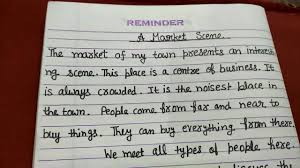 REMINDER
A Market Scene.
The market of my town presents an interest
ng scene. This place is a centre of business. It
is always crowded. It is the noisest place in
the town. People come from far and near to
buy things. They can buy everything from there
We meet all types of people here.